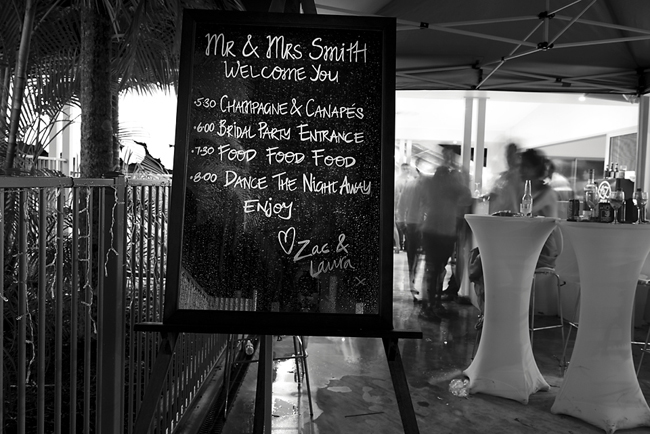 Mr & Mrs Smith
Welcome You
• 5:30 Champagne & Canapes
• 6:00 Bridal Party Entrance
• 7:30 Food Food Food
• 8:00 Dance The Night Away
Enjoy
♡ Zac &
Laura
x